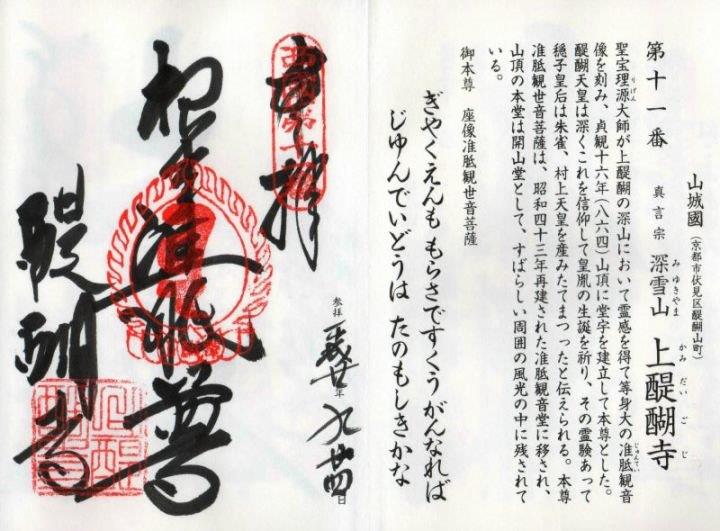 山城國(京都市伏見区醍醐山町)
第十一番 真言宗 深雪山 上醍醐寺
みゆきやま かみだいごじ
聖宝理源大師が上醍醐の深山において霊感を得て等身大の准胝観音
りげん じゅんてい
像を刻み、貞観十六年(八六四)山頂に堂宇を建立して本尊とした。
醍醐天皇は深くこれを信仰して皇胤の生誕を祈り、その霊験あって
穏子皇后は朱雀、村上天皇を産みたてまつったと伝えられる。本尊
准胝観世音菩薩は、昭和四十三年再建された准胝観音堂に移され、
山頂の本堂は開山堂として、すばらしい周囲の風光の中に残されて
いる。
御本尊 座像准胝観世音菩薩
ぎやくえんも もらさですくう がんなれば
じゅんでいどうは たのもしきかな
参拝 平成廿年 九 廿四日
奉拝
西国第十一番
根本准胝尊
醍醐寺